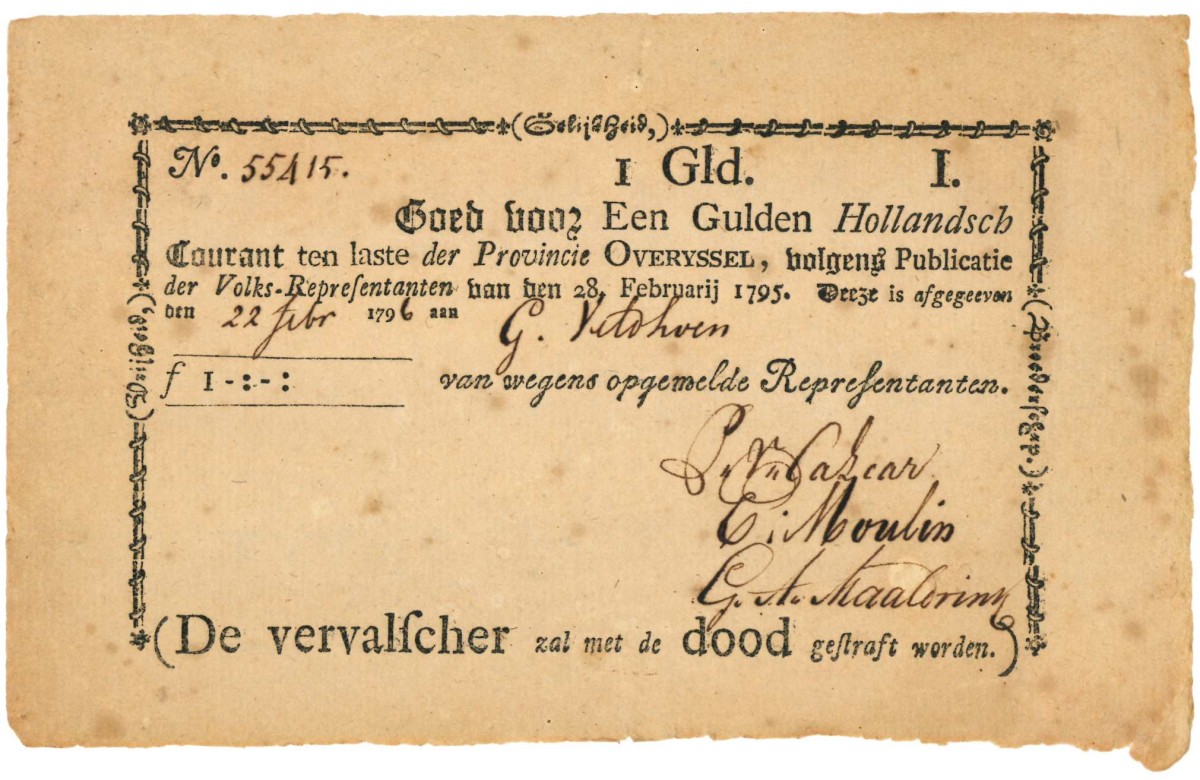 (Gelijkheid,)
No. 55415. 1 Gld. I.
Goed voor Een Gulden Hollandsch
Courant ten laste der Provincie OVERYSSEL, volgens Publicatie
der Volks-Repreſentanten van den 28. Februarij 1795. Deeze is afgegeeven
den 22 febr 1796 aan G. Veldhoen
f 1-:-: van wegens opgemelde Repreſentanten.
(Vrijheid,)
(Broederſchap.)
C: Moulin
(De vervalſcher zal met de dood geſtraft worden.)